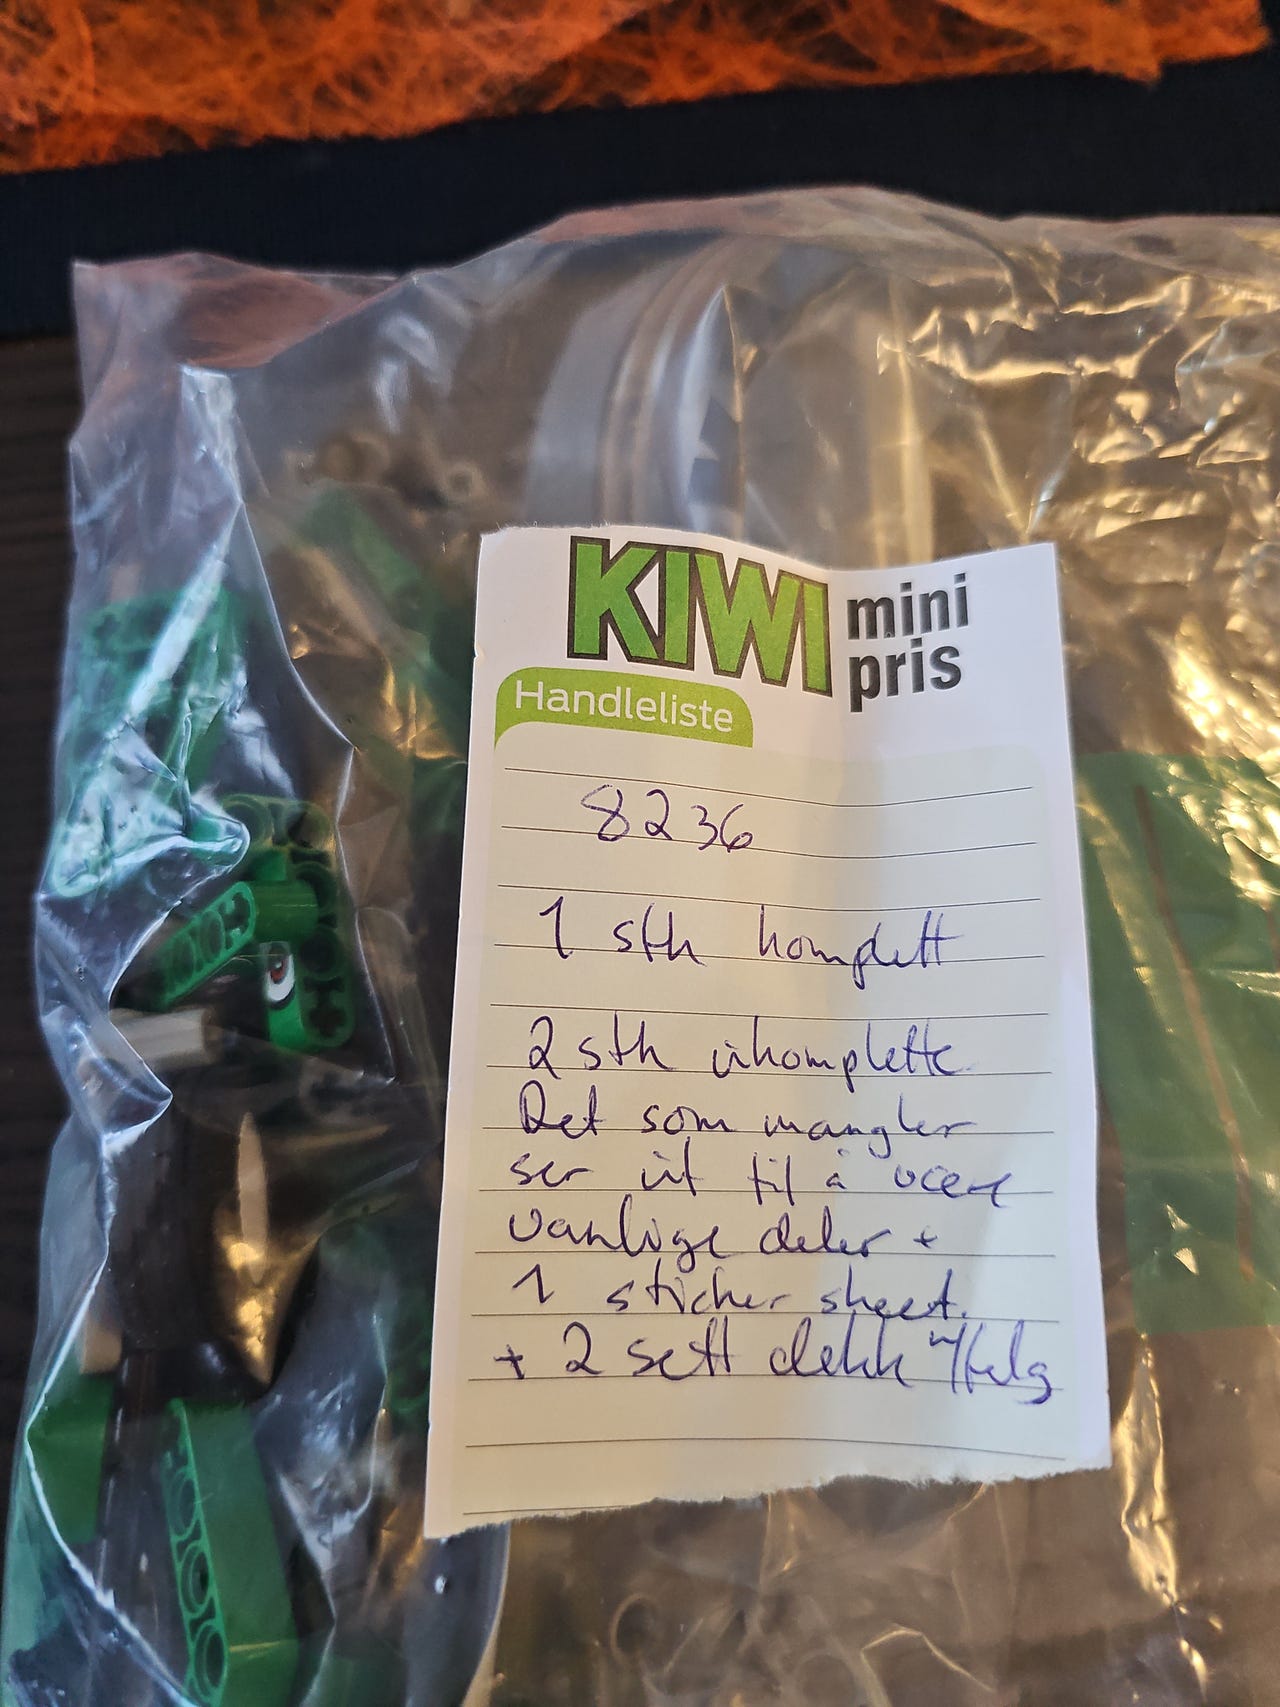 KIWI mini
pris
Handleliste
8236
1 stk komplett
2 stk inkomplette
Det som mangler
ser ut til å være
vanlige deler +
1 sticker sheet.
+ 2 sett dekk m/felg